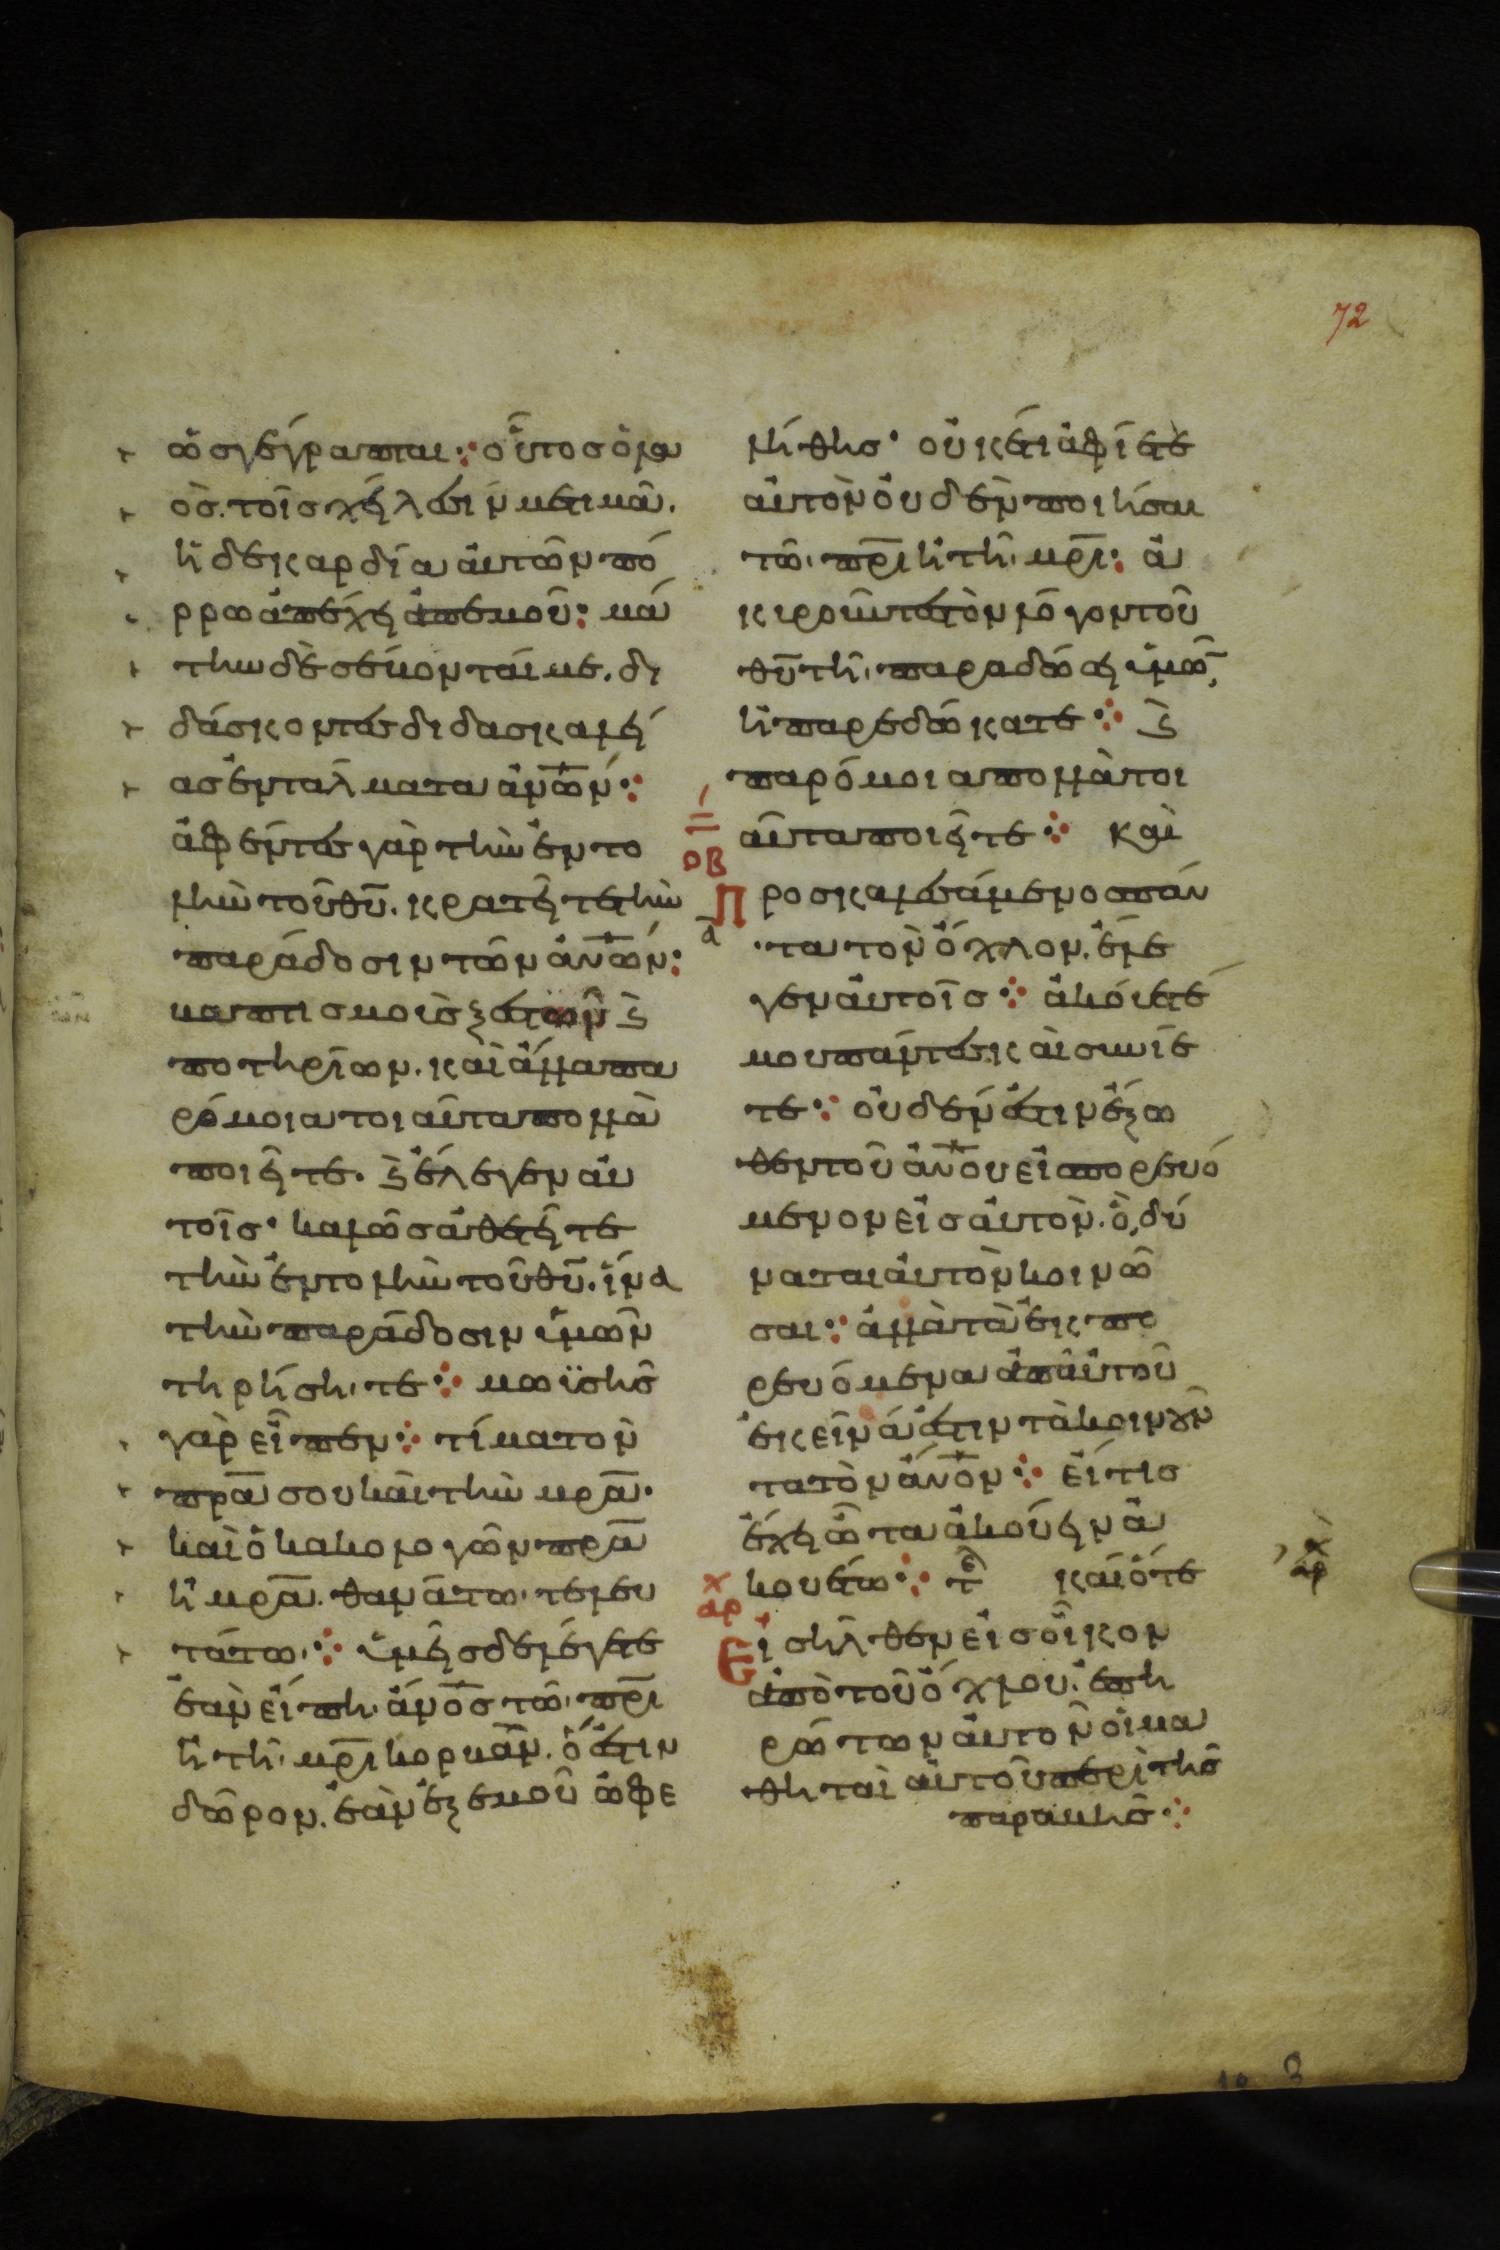 72
ὡς γέγραπται· οὗτος ὁ λα
ὸς. τοῖς χείλεσίν με τιμᾶ.
ἡ δὲ καρδία αὐτῶν πό
ρρω ἀπέχει ἀπ' ἐμοῦ· μά
την δὲ σέβονταί με. δι
δάσκοντες διδασκαλεί
ας ἐντάλματα ἀνων·
ἀφέντες γὰρ τὴν ἐντο
λὴν τοῦ θυ. κρατεῖτε τὴν
παράδοσιν τῶν ἀνων·
βαπτισμοὺς ξεστῶν κ(αὶ)
ποτηρίων. καὶ ἄλλα πα
ρόμοια τοιαῦτα πολλὰ
ποιεῖτε. κ(αὶ) ἔλεγεν αὐ
τοῖς· καλῶς ἀθετεῖτε
τὴν ἐντολὴν τοῦ θυ. ἵνα
τὴν παράδοσιν ὑμῶν
τηρήσητε· μωϋσῆς
γὰρ εἶπεν· τίμα τὸν
πρα σου καὶ τὴν μρα.
καὶ ὁ κακολογῶν πρα
ἢ μρα. θανάτω τελευ
τάτω· ὑμεῖς δὲ λέγετε
ἐὰν εἴπη ἄνος τῶ πρι
ἢ τῆ μρι κορβᾶν. ὅ ἐστιν
δῶρον. ἐὰν ἐξ ἐμοῦ ὠφε
ληθῆς· οὐκέτι ἀφίετε
αὐτὸν οὐδὲν ποιῆσαι
τῶ πρι ἢ τῆ μρι· ἀ
κυροῦντες τὸν λόγον τοῦ
θυ τῆ παραδόσει ὑμῶν,
ἧ παρεδώκατε· κ(αὶ)
παρόμοια πολλὰ τοι
αῦτα ποιεῖτε· Καὶ
ΟΒ
Προσκαλεσάμενος πάν
τα τὸν ὄχλον. ἔλε
γεν αὐτοῖς· ἀκούετέ
μου πάντες καὶ συνίε
τε· οὐδέν ἐστιν ἔξω
θεν τοῦ ἀνου εἰσπορευό
μενον εἰς αὐτὸν. ὃ δύ
ναται αὐτὸν κοινῶ
σαι· ἀλλὰ τὰ ἐκπο
ρευόμενα ἀπ' αὐτοῦ
ἐκεῖνά ἐστιν τὰ κοινοῦν
τα τὸν ἄνον· εἴ τις
ἔχει ὦτα ἀκούειν ἀ
κουέτω· τε καὶ ὅτε
αρ
Εἰσῆλθεν εἰς οἶκον
ἀπὸ τοῦ ὄχλου. ἐπη
ρώτων αὐτὸν οἱ μα
θηταὶ αὐτοῦ περὶ τῆς
παραβολῆς·